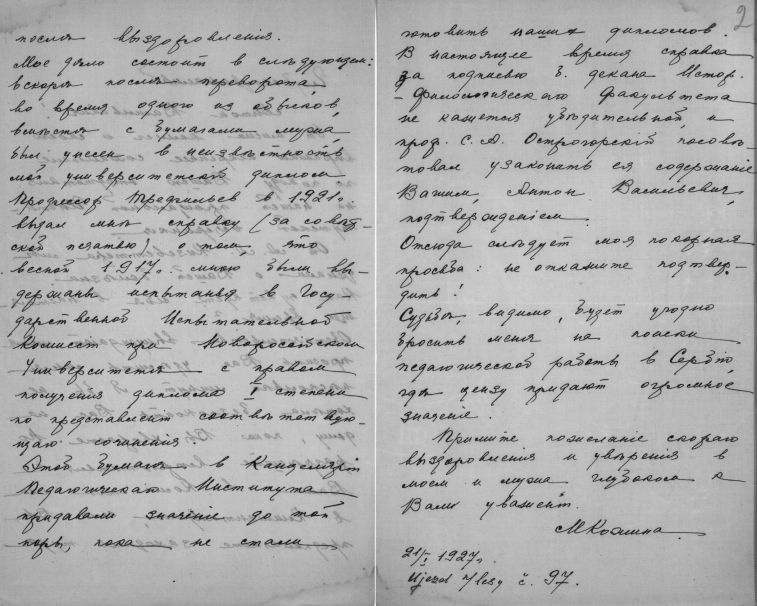 послѣ выздоровленія.
Мое дѣло состоитъ в слѣдующем:
вскорѣ послѣ переворота,
во время одного из обысков,
вмѣстѣ с бумагами мужа
был унесен в неизвѣстность
мой университетскій диплом
Профессор Трефильев в 1921 г.
выдал мнѣ справку (за совѣт-
ской печатью) о том, что
весной 1917 г. мною были вы-
держаны испытанья в Госу-
дарственной Испытательной
Комиссіи при Новороссійском
Университетѣ с правом
полученія диплома I степени
по представленіи соотвѣтствую-
щаго сочиненія.
Этой бумагѣ в Канцеляріи
Педагогическаго Института
придавали значеніе до той
поры, пока не стали
2
готовить наших дипломов.
В настоящее время справка
за подписью б. декана Истор.
-Филологическаго Факультета
не кажется убѣдительной, и
проф. С. А. Острогорскій посовѣ-
товал узаконить ея содержаніе
Вашим, Антон Васильевич,
подтвержденіем.
Отсюда слѣдует моя покорная
просьба: не откажите подтвер-
дить!
Судьбѣ, видимо, будет угодно
бросить меня на поиски
педагогической работы в Сербію,
гдѣ цензу придают огромное
значеніе.
Примите пожеланіе скораго
выздоровленія и увѣренія в
моем и мужа глубоком к
Вам уваженіи.
МКосмина
21/I 1927 г.
Ujezd č. 97.